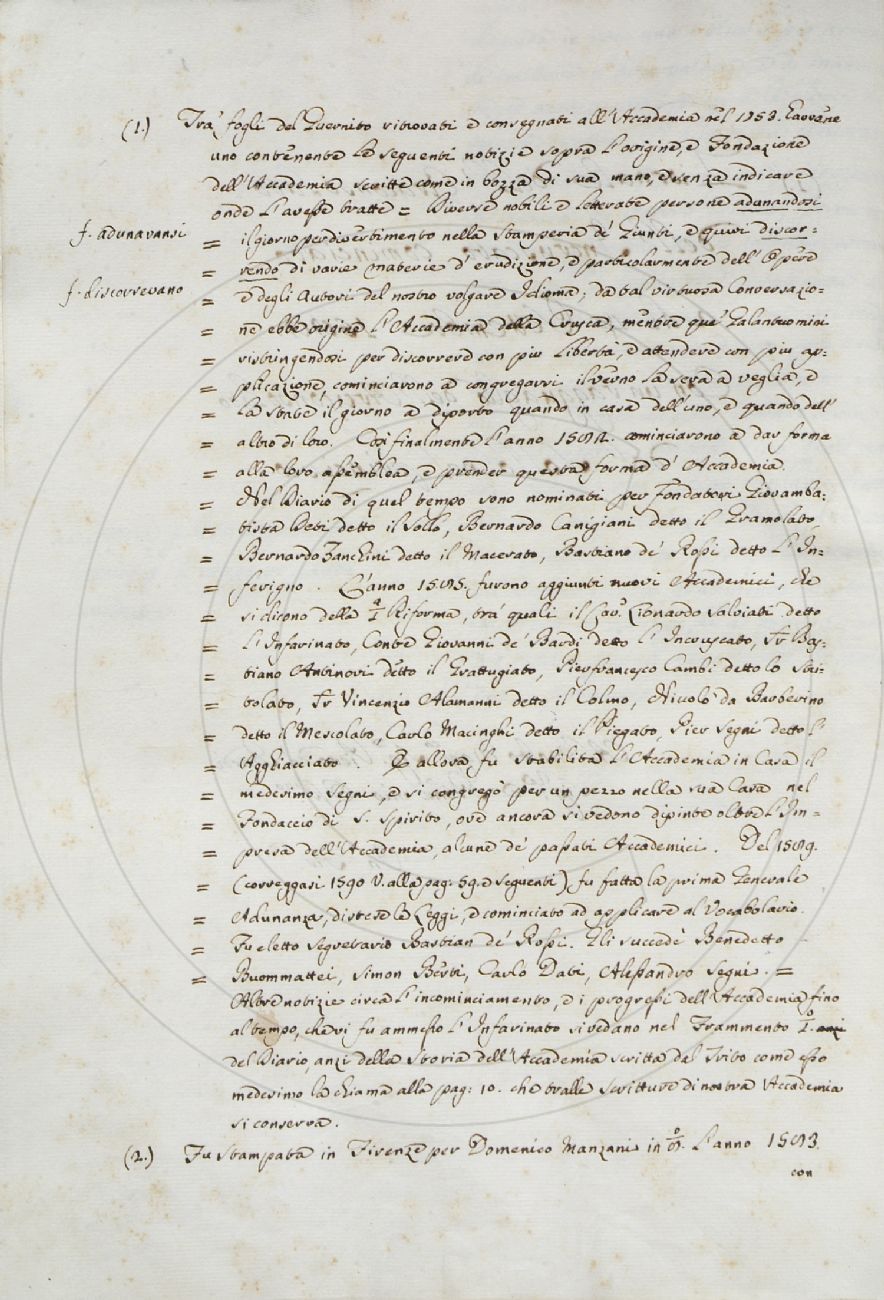 (1.) Tra' fogli del Guernito ritrovati e consegnati all'Accademia nel 1753. Eavvene
uno contenente le seguenti notizie sopra l'origine, e Fondazione
dell'Accademia scritte come in bozza di sua mano, e senza indicare
onde l'avesse tratte = Diverse nobili e letterate persone adunandosi
f. adunavansi
= il giorno per divertimento nella Stamperia de' Giunti, e quivi discor=
= rendo di varie materie d'erudizione, e particolarmente dell'Opere
f. discorrevano
= e degli Autori del nostro volgare Idioma; da tal virtuosa Conversazio=
= ne ebbe origine l'Accademia della Crusca, mentre que' Galantuomini
= ristringendosi per discorrere con più libertà, e attendere con più ap=
= plicazione, cominciarono a congregarsi il verno la sera a veglia, e
= la state il giorno a diporto quando in casa dell'uno, e quando dell'
= altro di loro. Così finalmente l'anno 1582. cominciarono a dar forma
= alla loro assemblea, e prender questa forma d'Accademia.
= Nel Diario di quel tempo sono nominati per Fondatori Giovamba=
= tista Deti detto il Sollo, Bernardo Canigiani detto il Gramolato,
= Bernardo Zanchini detto il Macerato, Bastiano de' Rossi detto l'In=
= ferigno. L'anno 1585. furono aggiunti nuovi Accademici, che
= si dicono della 1.a Riforma, tra' quali il Cav.o Lionardo Salviati detto
= l'Infarinato, Conte Giovanni de' Bardi detto l'Incruscato, Fr Bas=
= tiano Antinori detto il Grattugiato, Pierfrancesco Cambi detto lo Stri=
= tolato, Fr Vincenzio Alamanni detto il Colmo, Niccolò da Barberino
= detto il Mescolato, Carlo Macinghi detto il Piegato, Pier Segni detto l'
= Agghiacciato. E allora fu stabilita l'Accademia in Casa il
= medesimo Segni, e si congregò per un pezzo nella sua Casa nel
= Fondaccio di S. Spirito, ove ancora si vedono dipinte oltre l'Im=
= presa dell'Accademia, alcune de' passati Accademici. Del 1589.
= (correggasi 1590 V. alla pag: 59. e seguenti) fu fatta la prima Generale
= Adunanza, distese le Leggi, e cominciato ad applicare al Vocabolario.
= Fu eletto Segretario Bastian de' Rossi. Gli succedè Benedetto
= Buommattei, Simon Berti, Carlo Dati, Alessandro Segni. =
Altre notizie circa l'incominciamento, e i progressi dell'Accademia fino
al tempo, che vi fu ammesso l'Infarinato si vedano nel Frammento 1.o anzi
del Diario, anzi della Storia dell'Accademia scritta dal Trito come esso
medesimo la chiama alla pag: 10. che tralle scritture di nostra Accademia
si conserva.
(2.) Fu stampata in Firenze per Domenico Manzani in 8.o l'anno 1583.
con